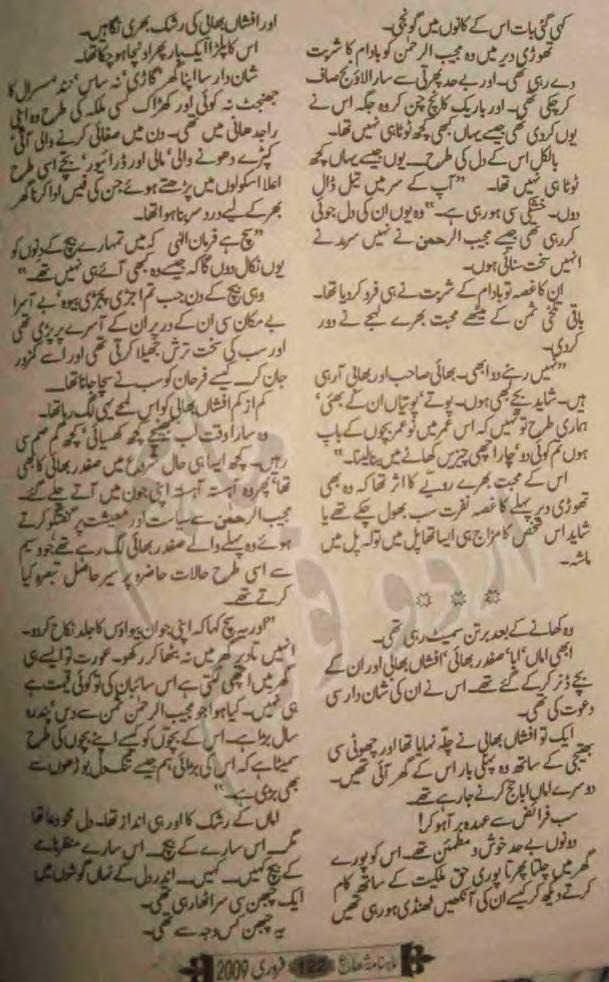 کہی گئی بات اس کے کانوں میں گونجی۔
تھوڑی دیر میں وہ مجیب الرحمٰن کو بادام کا شربت
دے رہی تھی۔ اور بے حد پھرتی سے سارا لاؤنج صاف
کر چکی تھی۔ اور باریک کانچ چن کر وہ جگہ اس نے
یوں کر دی تھی جیسے یہاں کبھی کچھ ٹوٹا ہی نہیں تھا۔
بالکل اس کے دل کی طرح۔ یوں جیسے یہاں کچھ
ٹوٹا ہی نہیں تھا۔ "آپ کے سر میں تیل ڈال
دوں۔ خشکی سی ہو رہی ہے۔" وہ یوں ان کی دل جوئی
کر رہی تھی جیسے مجیب الرحمٰن نے نہیں سرمد نے
انہیں سخت سنائی ہوں۔
ان کا غصہ تو بادام کے شربت نے ہی فرو کر دیا تھا۔
باقی تلخی ثمن کے میٹھے محبت بھرے لہجے نے دور
کر دی۔
"نہیں رہنے دو ابھی۔ بھائی صاحب اور بھابی آ رہی
ہیں۔ شاید بچے بھی ہوں۔ پوتے پوتیاں ان کے بھئی،
ہماری طرح تو نہیں کہ اس عمر میں نو عمر بچوں کے باپ
ہوں تم کوئی دو چار اچھی چیزیں کھانے میں بنا لینا۔"
اس کے محبت بھرے رویے کا اثر تھا کہ وہ بھی
تھوڑی دیر پہلے کا غصہ نفرت سب بھول چکے تھے یا
شاید اس شخص کا مزاج ہی ایسا تھا پل میں تولہ پل میں
ماشہ۔
وہ کھانے کے بعد برتن سمیٹ رہی تھی۔
ابھی اماں، ابا، صفدر بھائی، افشاں بھابی اور ان کے
بچے ڈنر کر کے گئے تھے۔ اس نے ان کی شان دار سی
دعوت کی تھی۔
ایک تو افشاں بھابی نے چلہ نہایا تھا اور چھوٹی سی
بھتیجی کے ساتھ وہ پہلی بار اس کے گھر آئی تھیں۔
دوسرے اماں ابا حج کرنے جا رہے تھے۔
سب فرائض سے عہدہ برآ ہو کر!
دونوں بے حد خوش و مطمئن تھے۔ اس کو پورے
گھر میں چلتا پھرتا پوری حق ملکیت کے ساتھ کام
کرتے دیکھ کر کیسے ان کی آنکھیں ٹھنڈی ہو رہی تھیں
اور افشاں بھابی کی رشک بھری نگاہیں۔
اس کا پلڑا ایک بار پھر اونچا ہو چکا تھا۔
شان دار سا اپنا گھر، گاڑی، نہ ساس، نند سسرال کا
جھنجٹ نہ کوئی اور کھڑاک کسی ملکہ کی طرح وہ اپنی
راجدھانی میں تھی۔ دن میں صفائی کرنے والی آتی،
کپڑے دھونے والی، مالی اور ڈرائیور، بچے اسی طرح
اعلا اسکولوں میں پڑھتے ہوئے جن کی فیس ادا کرنا گھر
بھر کے لیے درد سر بنا ہوا تھا۔
"سچ ہے فرمان الٰہی کہ میں تمہارے بیچ کے دنوں کو
یوں نکال دوں گا کہ جیسے وہ کبھی آئے ہی نہیں تھے۔"
وہی بیچ کے دن جب تم اجڑی پجڑی بیوہ، بے آسرا
بے مکان سی ان کے در پر ان کے آسرے پر پڑی تھی
اور سب کی سخت ترش جھیلا کرتی تھی اور اسے کمزور
جان کر کیسے فرحان کو سب نے سچا جانا تھا۔
کم از کم افشاں بھابی کو اس لمحے یہی لگ رہا تھا۔
وہ سارا وقت لب بھینچے کچھ کھسیائی، کچھ گم صم سی
رہیں۔ کچھ ایسا ہی حال شروع میں صفدر بھائی کا بھی
تھا، پھر وہ آہستہ آہستہ اپنی جون میں آتے چلے گئے۔
مجیب الرحمٰن سے سیاست اور معیشت پر گفتگو کرتے
ہوئے وہ پہلے والے صفدر بھائی لگ رہے تھے جو وسیم
سے اسی طرح حالات حاضرہ پر سیر حاصل تبصرہ کیا
کرتے تھے۔
"اور یہ سچ کہا کہ اپنی جوان بیواؤں کا جلد نکاح کر دو۔
انہیں تا دیر گھر میں نہ بٹھا کر رکھو۔ عورت تو ایسے ہی
گھر میں اچھی لگتی ہے اس سائبان کی تو کوئی قیمت ہے
ہی نہیں۔ کیا ہوا جو مجیب الرحمٰن ثمن سے دس، پندرہ
سال بڑا ہے۔ اس کے بچوں کو کیسے اپنے بچوں کی طرح
سمیٹا ہے کہ اس کی بڑائی ہم جیسے تنگ دل بوڑھوں سے
بھی بڑی ہے۔"
اماں کے رشک کا اور ہی انداز تھا۔ دل مجھ دعا تھا
مگر۔ اس سارے کے بیچ۔ اس سارے منظر نامے
کے بیچ کہیں۔ کہیں۔ اندر دل کے نہاں گوشوں میں
ایک چبھن سی سر اٹھا رہی تھی۔
یہ چبھن کس وجہ سے تھی۔
ماہنامہ شعاع 122 فروری 2009